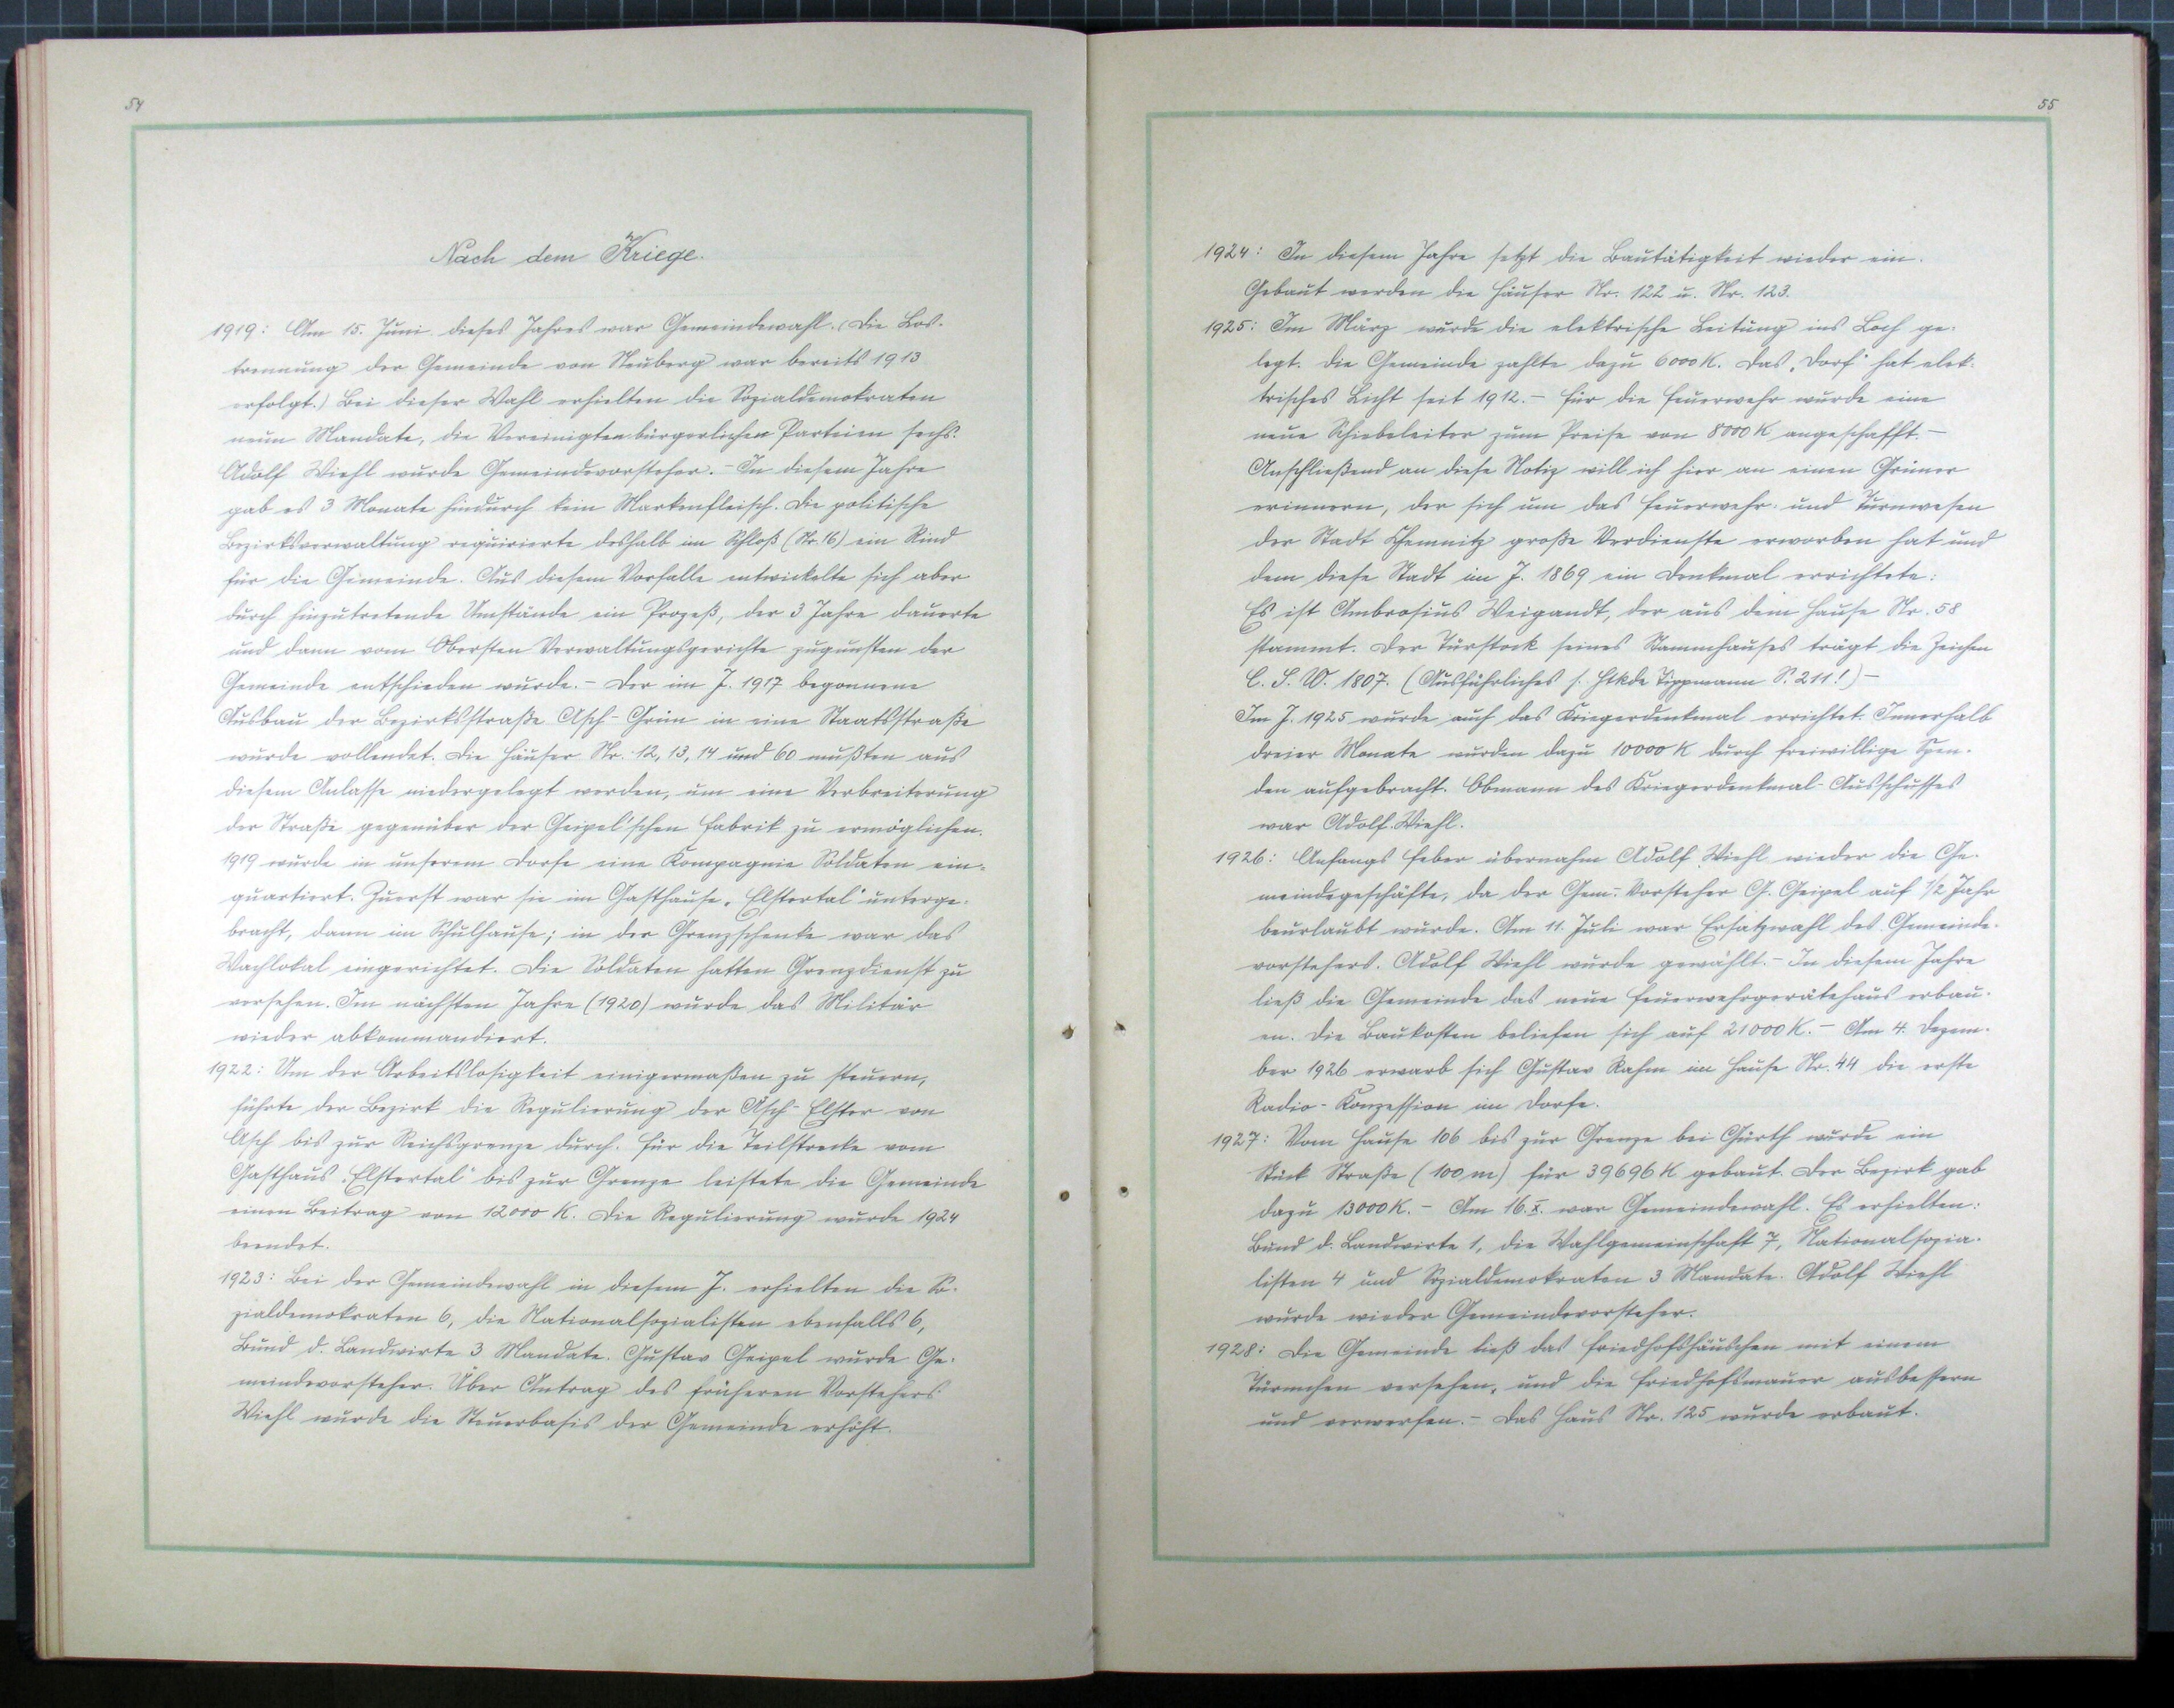 54
Nach dem Kriege.
1919: Am 15. Juni dieses Jahres war Gemeindewahl. (Die Los-
trennung der Gemeinde von Neuberg war bereits 1913
erfolgt.) Bei dieser Wahl erhielten die Sozialdemokraten
neun Mandate, die Vereinigten bürgerlichen Parteien sechs.
Adolf Wiehl wurde Gemeindevorsteher. – In diesem Jahre
gab es 3 Monate hindurch kein Markenfleisch. Die politische
Bezirksverwaltung requirierte deshalb im Schloß (Nr. 16) ein Rind
für die Gemeinde. Aus diesem Vorfalle entwickelte sich aber
durch hinzutretende Umstände ein Prozeß, der 3 Jahre dauerte
und dann vom Obersten Verwaltungsgerichte zugunsten der
Gemeinde entschieden wurde. – Der im J. 1917 begonnene
Ausbau der Bezirksstraße Asch-Grün in eine Staatsstraße
wurde vollendet. Die Häuser Nr. 12, 13, 14 und 60 mußten aus
diesem Anlasse niedergelegt werden, um eine Verbreiterung
der Straße gegenüber der Geipel'schen Fabrik zu ermöglichen.
1919 wurde in unserem Dorfe eine Kompagnie Soldaten ein-
quartiert. Zuerst war sie im Gasthause „Elstertal" unterge-
bracht, dann im Schulhause; in der Grenzschenke war das
Wachlokal eingerichtet. Die Soldaten hatten Grenzdienst zu
versehen. Im nächsten Jahre (1920) wurde das Militär
wieder abkommandiert.
1922: Um der Arbeitslosigkeit einigermaßen zu steuern,
führte der Bezirk die Regulierung der Asch-Elster von
Asch bis zur Reichsgrenze durch. Für die Teilstrecke vom
Gasthaus „Elstertal" bis zur Grenze leistete die Gemeinde
einen Beitrag von 12000 K. Die Regulierung wurde 1924
beendet.
1923: Bei der Gemeindewahl in diesem J. erhielten die So-
zialdemokraten 6, die Nationalsozialisten ebenfalls 6,
Bund d. Landwirte 3 Mandate. Gustav Geipel wurde Ge-
meindevorsteher. Über Antrag des früheren Vorstehers
Wiehl wurde die Steuerbasis der Gemeinde erhöht.
55
1924: In diesem Jahre setzt die Bautätigkeit wieder ein.
Gebaut werden die Häuser Nr. 122 u. Nr. 123.
1925: Im März wurde die elektrische Leitung ins Loch ge-
legt. Die Gemeinde zahlte dazu 6000 K. Das „Dorf" hat elek-
trisches Licht seit 1912. – Für die Feuerwehr wurde eine
neue Schiebeleiter zum Preise von 8000 K angeschafft. –
Anschließend an diese Notiz will ich hier an einen Grüner
erinnern, der sich um das Feuerwehr- und Turnwesen
der Stadt Chemnitz große Verdienste erworben hat und
dem diese Stadt im J. 1869 ein Denkmal errichtete:
Es ist Ambrosius Weigandt, der aus dem Hause Nr. 58
stammt. Der Türstock seines Stammhauses trägt die Zeichen
C. S. W. 1807. (Ausführliches s. Htkde Tippmann S. 211!) –
Im J. 1925 wurde auch das Kriegerdenkmal errichtet. Innerhalb
dreier Monate wurden dazu 10000 K durch freiwillige Spen-
den aufgebracht. Obmann des Kriegerdenkmal-Ausschusses
war Adolf Wiehl.
1926: Anfangs Feber übernahm Adolf Wiehl wieder die Ge-
meindegeschäfte, da der Gem.-Vorsteher G. Geipel auf 1/2 Jahr
beurlaubt wurde. Am 11. Juli war Ersatzwahl des Gemeinde-
vorstehers. Adolf Wiehl wurde gewählt. – In diesem Jahre
ließ die Gemeinde das neue Feuerwehrgerätehaus erbau-
en. Die Baukosten beliefen sich auf 21000 K. – Am 4. Dezem-
ber 1926 erwarb sich Gustav Rahm im Hause Nr. 44 die erste
Radio-Konzession im Dorfe.
1927: Vom Hause 106 bis zur Grenze bei Gürth wurde ein
Stück Straße (100 m) für 39696 K gebaut. Der Bezirk gab
dazu 13000 K. – Am 16. X. war Gemeindewahl. Es erhielten:
Bund d. Landwirte 1, die Wahlgemeinschaft 7, Nationalsozia-
listen 4 und Sozialdemokraten 3 Mandate. Adolf Wiehl
wurde wieder Gemeindevorsteher.
1928: Die Gemeinde ließ das Friedhofshäuschen mit einem
Türmchen versehen, und die Friedhofsmauer ausbessern
und verwerfen. – Das Haus Nr. 125 wurde erbaut.